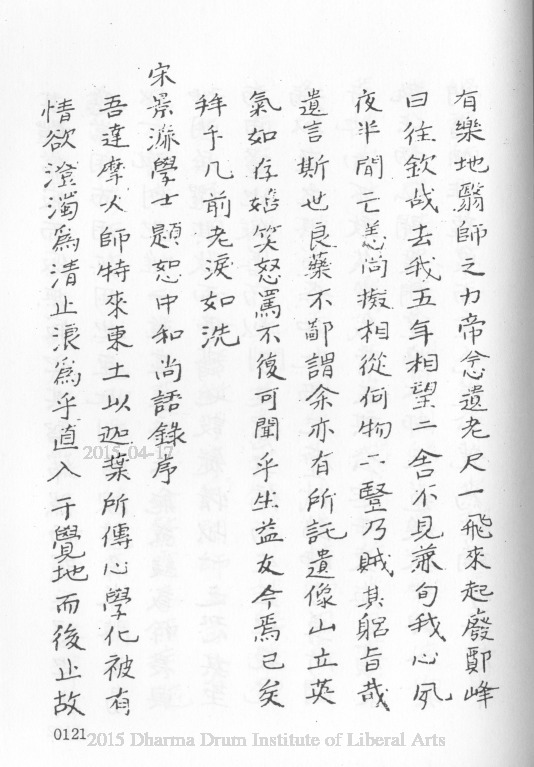 有樂地翳師之力帝念遺老尺一飛來起廢鄮峰
曰往欽哉去我五年相望二舍不見兼旬我心夙
夜半聞亡恙尚擬相從何物二豎乃賊其躬旨哉
遺言斯世良藥不鄙謂余亦有所託遺像山立英
氣如存嬉笑怒罵不復可聞乎生益友今焉已矣
拜手几前老淚如洗
宋景濂學士題恕中和尚語錄序
吾達摩大師特來東土以迦葉所傳心學化被有
情欲澄濁為清止浪為乎直入于覺地而後止故
0121
2015-04-17
2015 Dharma Drum Institute of Liberal Arts